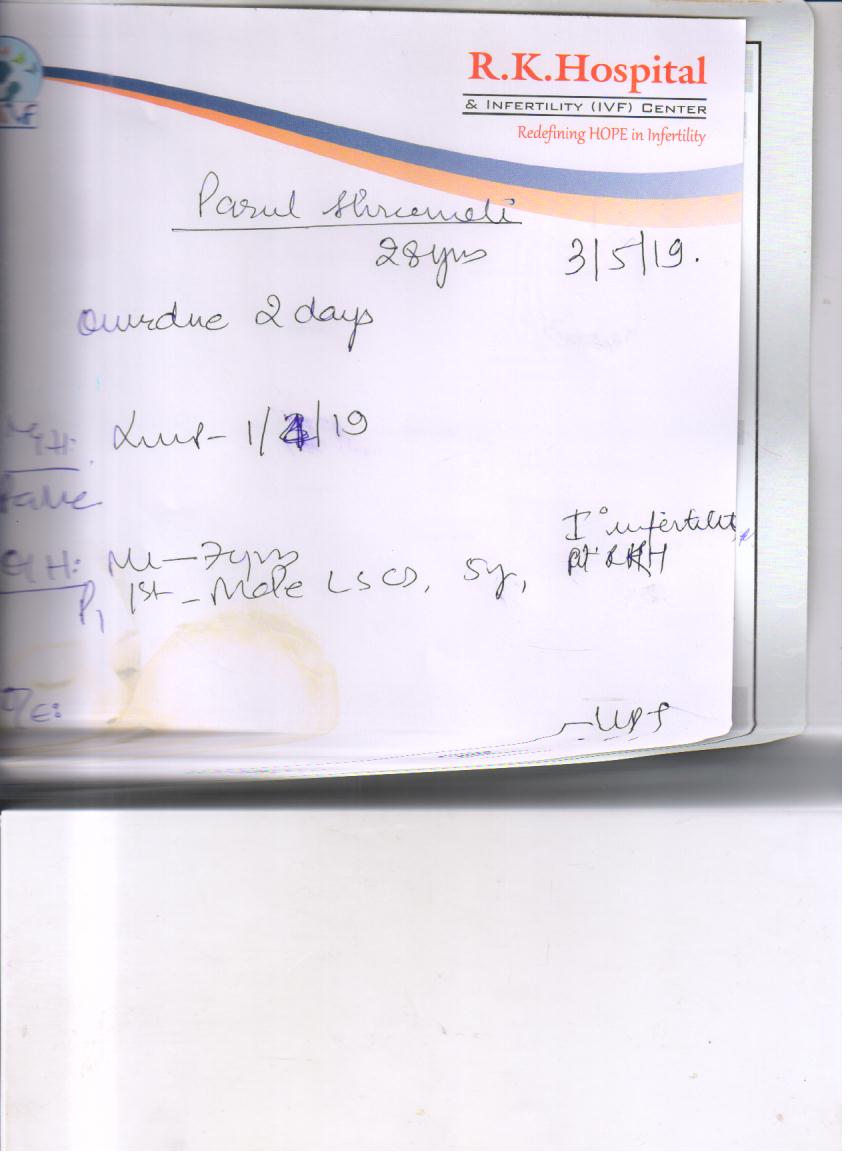 IVF
R.K.Hospital
& INFERTILITY (IVF) CENTER
Redefining HOPE in Infertility
Parul Shreemali
28yrs 3/5/19.
Overdue 2 days
M/H: Lmp - 1/4/19
O/H: ML - 7yrs I° infertility,
P1 1st - Male LSCS, 5y, at RKH
O/E:
- UPT